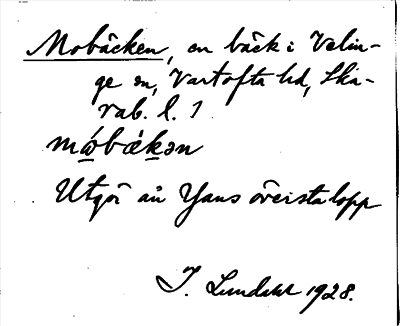 Mobäcken, en bäck i Valin-
ge sn, Vartofta hd, Ska-
rab. l. 1
Utgör ån Yans översta lopp
J. Lundahl 1928.